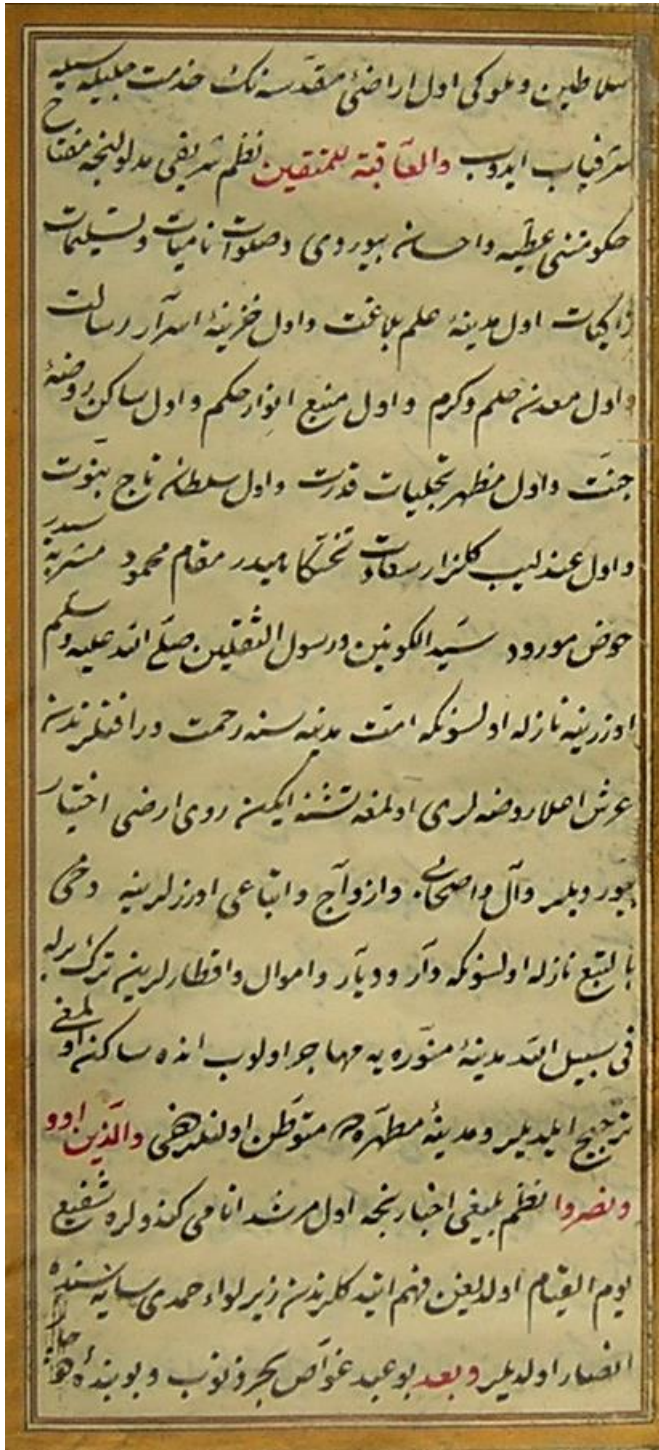 سلاطین و ملوکی اول اراضئ مقدسه نک خدمت جلیله سیله
شرفیاب ایدوب والعاقبة للمتقین نظم شریفی مدلولنجه مفتاح
حکومتنی عطیه و احسان بیوردی و صلوات نامیات و تسلیمات
زاکیات اول مدینۀ علم بلاغت و اول خزینۀ اسرار رسالت
و اول معدن حلم و کرم و اول منبع انوار حکم و اول ساکن روضۀ
جنت و اول مظهر تجلیات قدرت و اول سلطان تاج نبوت
و اول عندلیب کلزار سعادت تختکاهیدر مقام محمود مشربه سیدر
حوض مورود سید الکونین و رسول الثقلین صلی الله علیه وسلم
اوزرینه نازله اولسونکه امت مدینه سنه رحمت و رافتلرندن
عرش اعلا روضه لری اولمغه تشنه ایکن روی ارضی اختیار
بیوردیلر و آل و اصحاب و ازواج و اتباعی اوزرلرینه دخی
بالتبع نازله اولسونکه دار و دیار و اموال و اقطارلرین ترک برله
فی سبیل الله مدینۀ منوره یه مهاجر اولوب انده ساکن اولمغی
ترجیح ایلدیلر و مدینۀ مطهره ده متوطن اولنلر دخی والذین اووا
ونصروا نظم بلیغی اخبارنجه اول مرشد انامی کندولره شفیع
یوم القیام اولدیغین فهم ایتدکلرندن زیر لواء حمدی سایه سنده
انصار اولدیلر وبعد بو عبد غواص بحر ذنوب و بو بندۀ